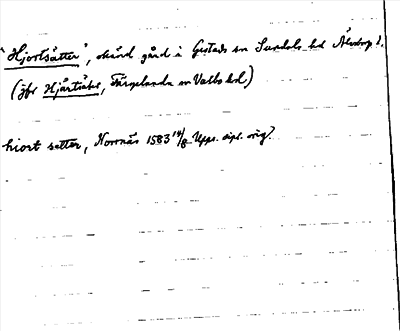 "Hjortsätter", okänd gård i Gestads sn Sundals hd Älvsborgs l.
(jfr Hjärtsäter, Färgelanda sn Valbo hd)
hiort setter, Norrnäs 1583 14/8 Upps. dipl. orig.